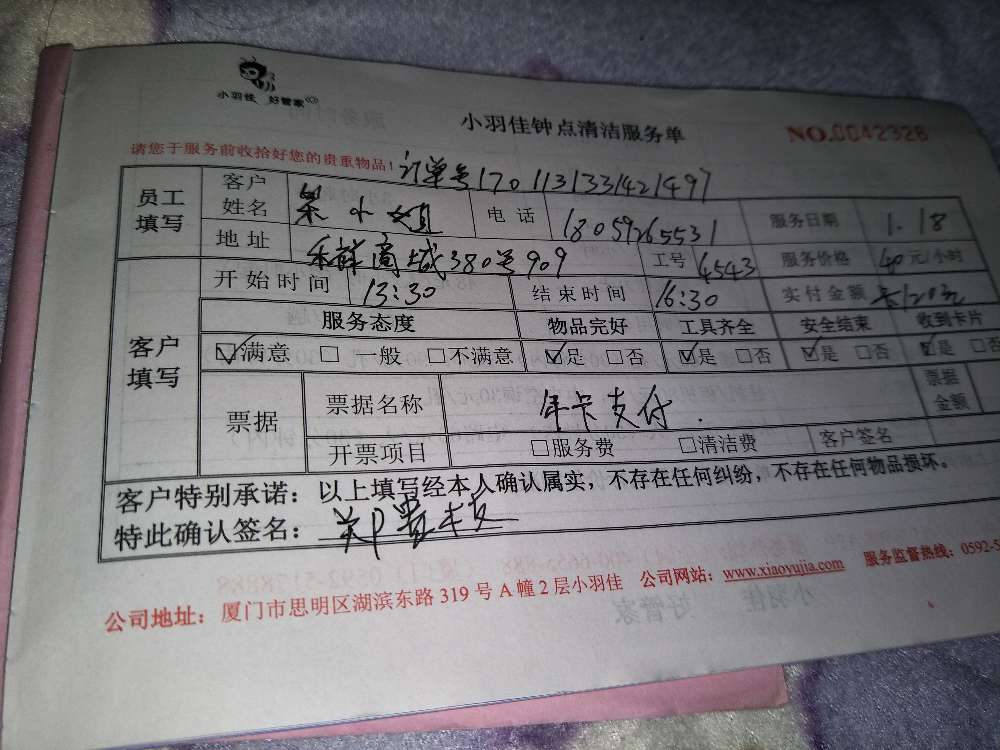 小羽佳 好管家
小羽佳钟点清洁服务单
NO.0042326
请您于服务前收拾好您的贵重物品!
订单号1701131331421497
员工填写 客户姓名 小姐 电话 18059265531 服务日期 1.18
地址 禾祥商城380号909 工号 4543 服务价格 40元/小时
客户填写 开始时间 13:30 结束时间 16:30 实付金额 卡120元
服务态度 物品完好 工具齐全 安全结束 收到卡片
☑满意 □一般 □不满意 ☑是 □否 ☑是 □否 ☑是 □否 ☑是 □否
票据 票据名称 年卡支付. 票据金额
开票项目 □服务费 □清洁费 客户签名
客户特别承诺：以上填写经本人确认属实，不存在任何纠纷，不存在任何物品损坏。
特此确认签名：
公司地址：厦门市思明区湖滨东路319号A幢2层小羽佳 公司网站：www.xiaoyujia.com 服务监督热线：0592-5